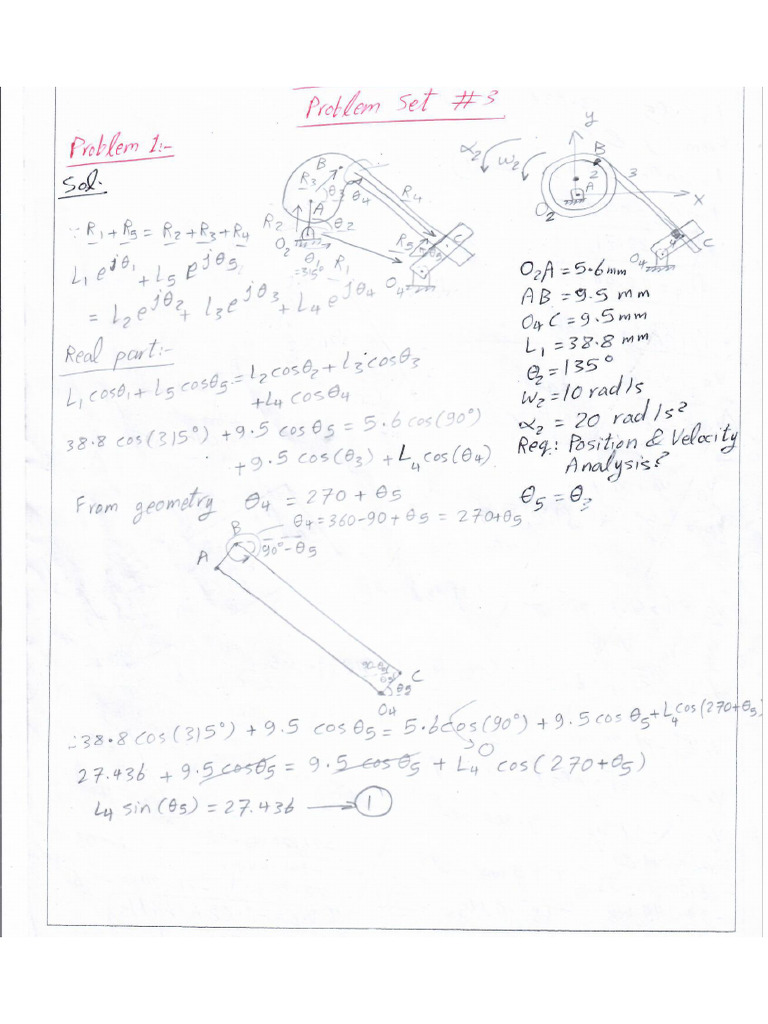 Problem Set #3
Problem 1:-
Sol:
∵ R1 + R5 = R2 + R3 + R4
L1 e^jθ1 + L5 e^jθ5
= L2 e^jθ2 + L3 e^jθ3 + L4 e^jθ4
B
R3
θ3
θ4
R4
A
R2
θ2
O2
θ1
=315°
R1
R5
θ5
C
O4
α2
ω2
y
B
2
3
A
x
O2
4
O4
C
O2A = 5.6 mm
AB = 9.5 mm
O4C = 9.5 mm
L1 = 38.8 mm
θ2 = 135°
ω2 = 10 rad/s
α2 = 20 rad/s²
Req: Position & Velocity
Analysis?
θ5 = θ3
Real part:-
L1 cosθ1 + L5 cosθ5 = L2 cosθ2 + L3 cosθ3
+ L4 cosθ4
38.8 cos(315°) + 9.5 cosθ5 = 5.6 cos(90°)
+ 9.5 cos(θ3) + L4 cos(θ4)
From geometry θ4 = 270 + θ5
θ4 = 360-90+θ5 = 270+θ5
B
90°-θ5
A
90-θ5
θ5
C
θ5
O4
∴ 38.8 cos(315°) + 9.5 cosθ5 = 5.6 cos(90°) + 9.5 cosθ5 + L4 cos(270+θ5)
0
27.436 + 9.5 cosθ5 = 9.5 cosθ5 + L4 cos(270+θ5)
L4 sin(θ5) = 27.436 → 1